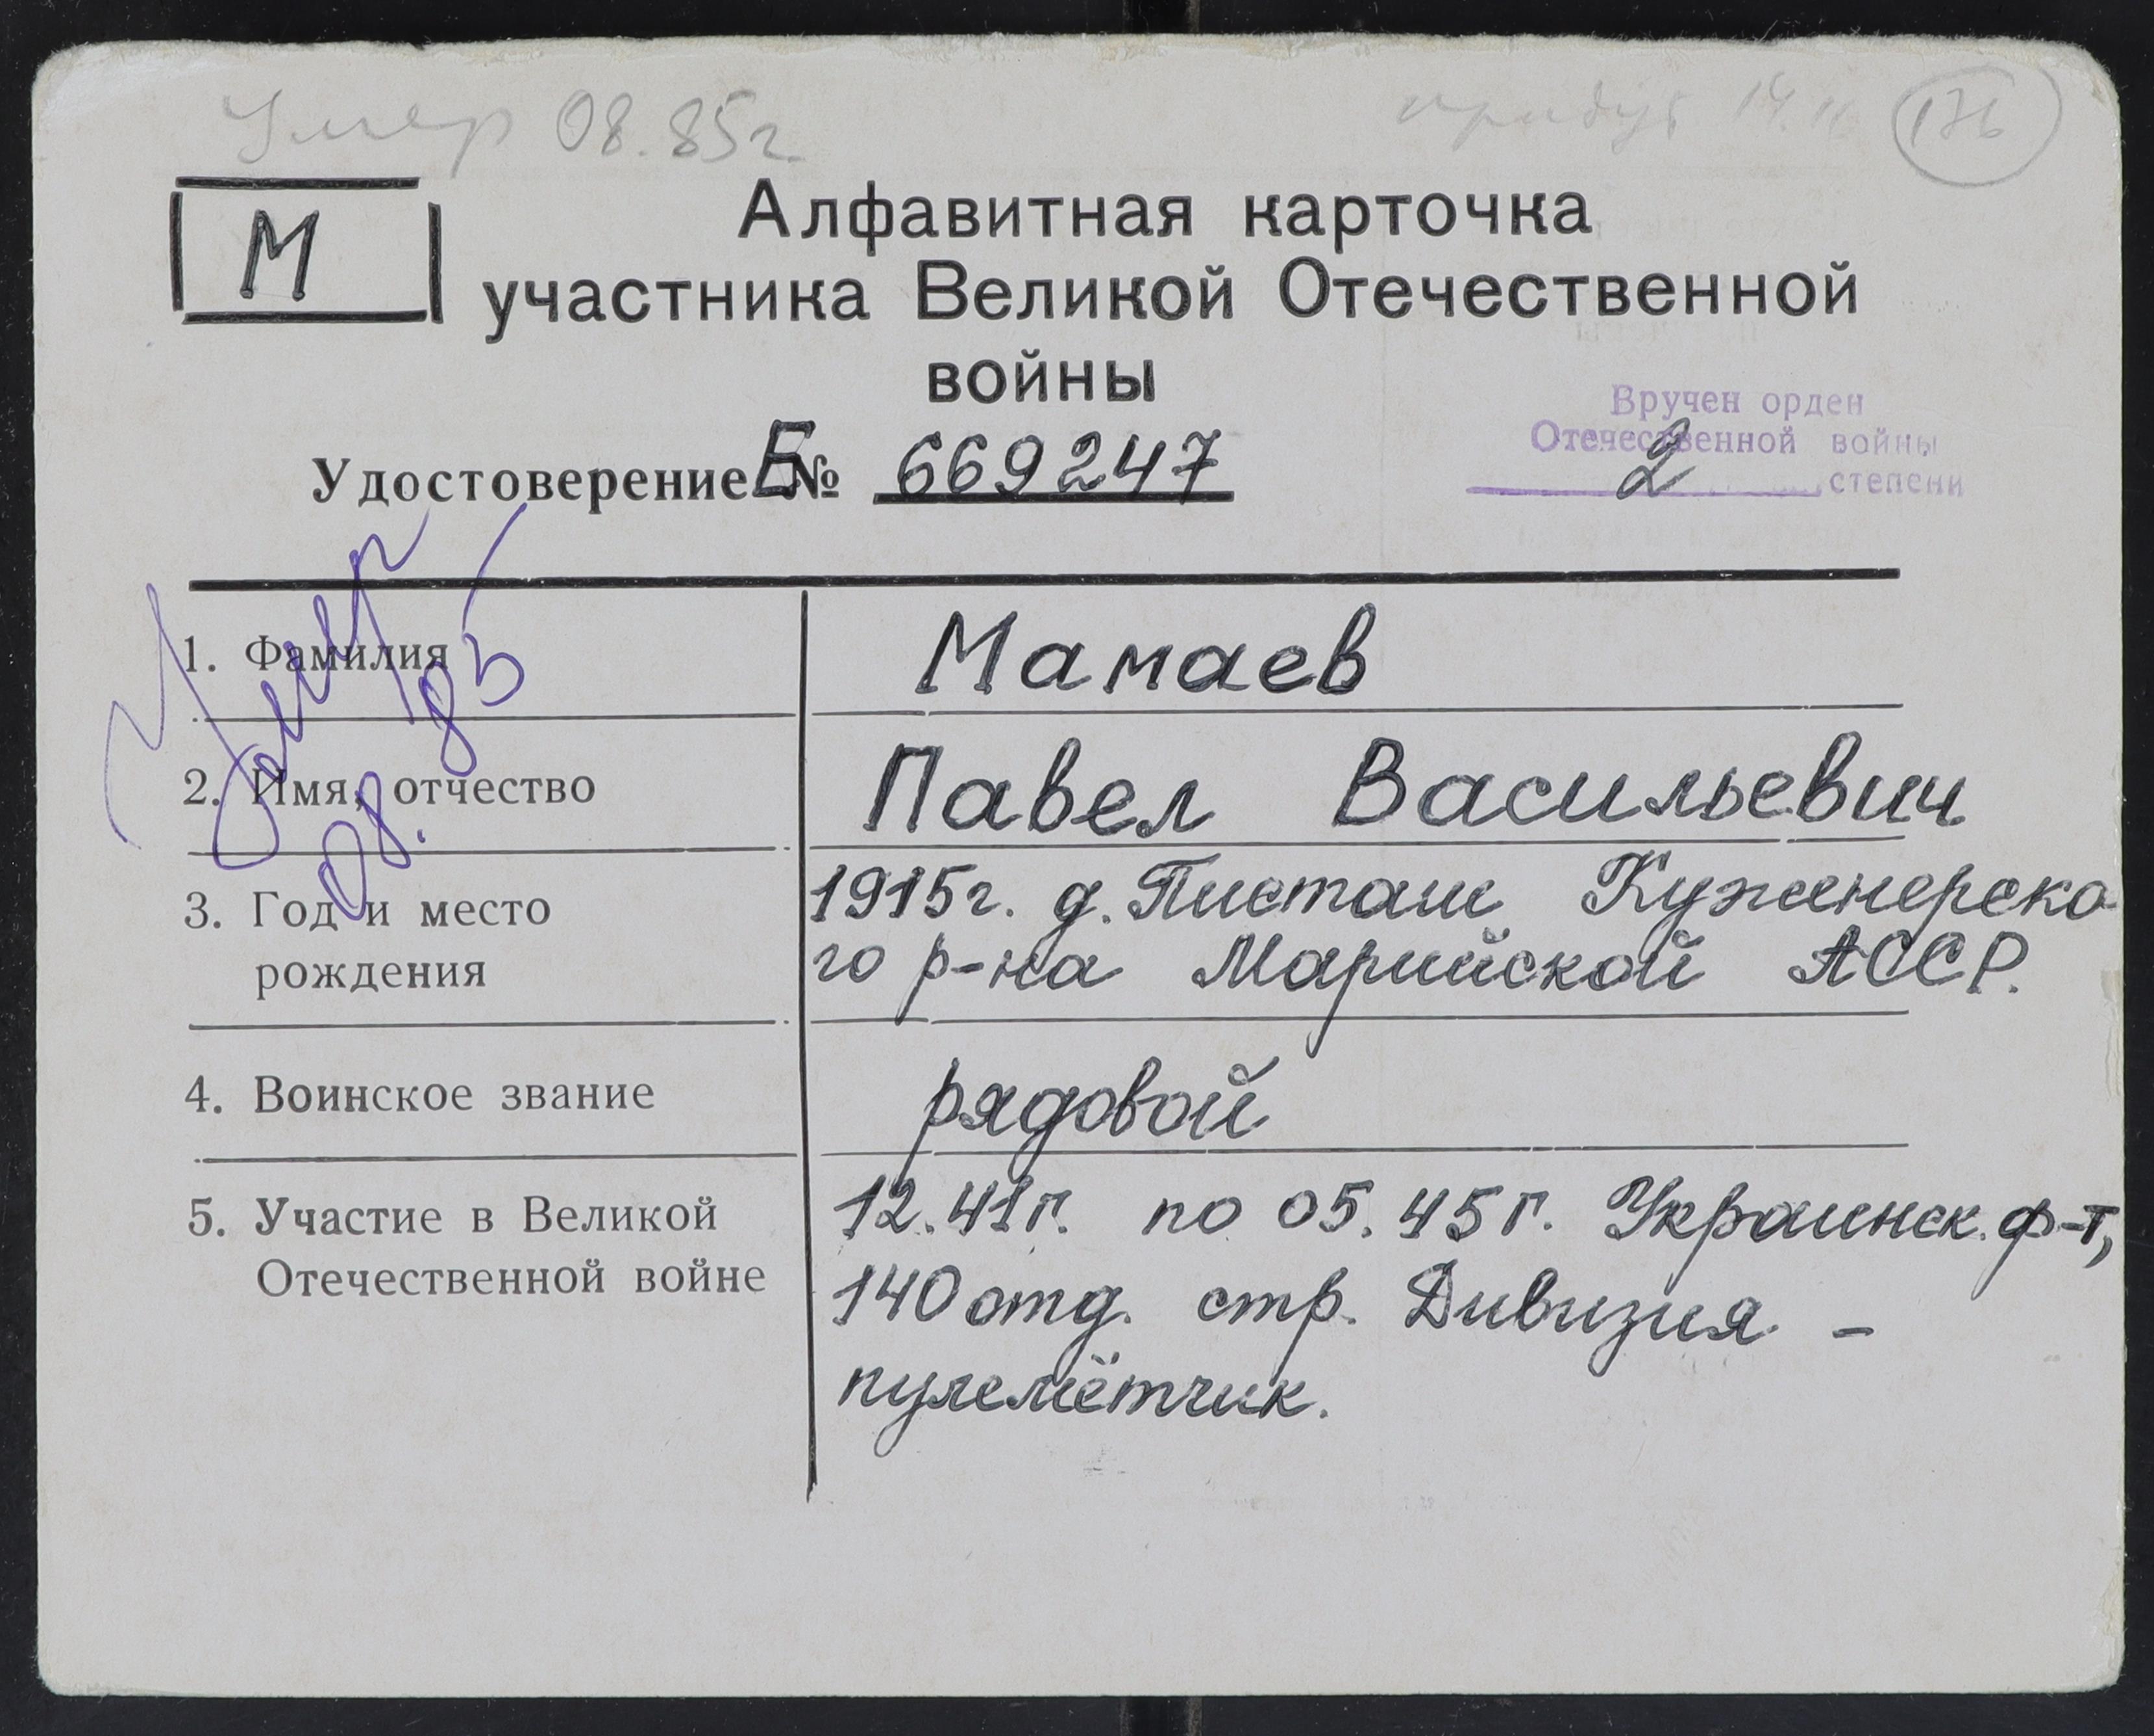 Умер 08.85г.
М
Алфавитная карточка
участника Великой Отечественной
войны
Вручен орден
Отечественной войны
2 степени
Удостоверение Б № 669247
Умер
08.85
1. Фамилия Мамаев
2. Имя, отчество Павел Васильевич
3. Год и место 1915г. д. Писташ Куженерско
рождения го р-на Марийской АССР.
4. Воинское звание рядовой
5. Участие в Великой 12.41г. по 05.45г. Украинск. ф-т,
Отечественной войне 140 отд. стр. Дивизия -
пулемётчик.